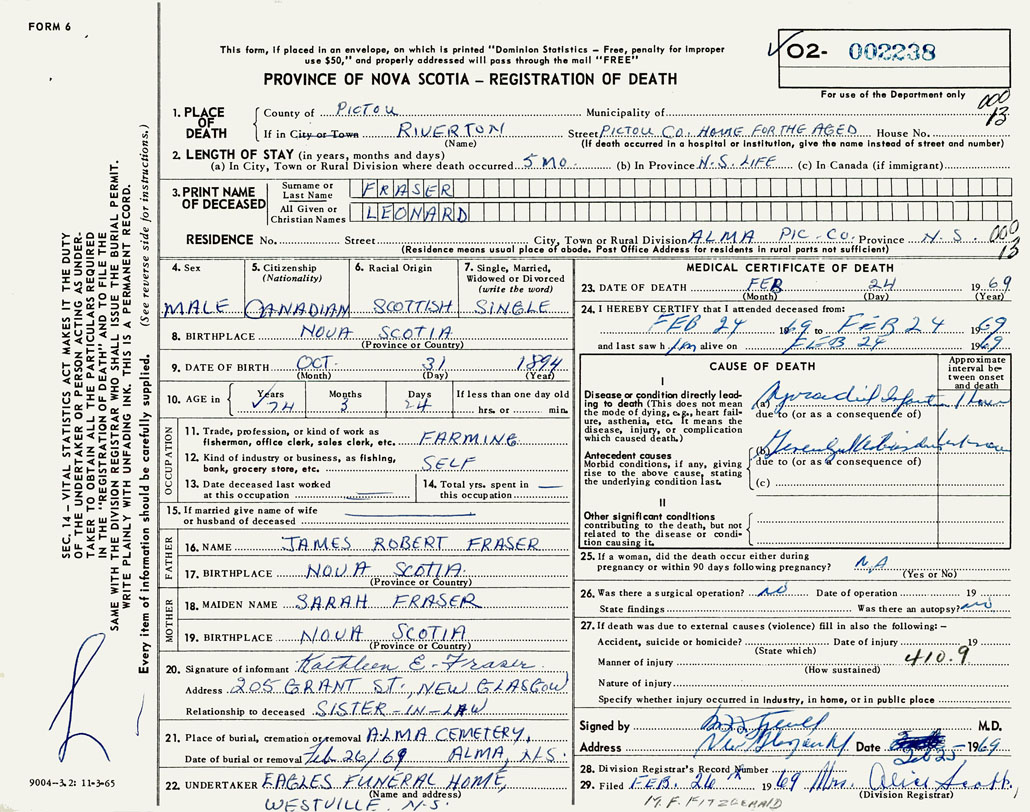 FORM 6
This form, if placed in an envelope, on which is printed "Dominion Statistics – Free, penalty for improper
use $50," and properly addressed will pass through the mail "FREE"
PROVINCE OF NOVA SCOTIA – REGISTRATION OF DEATH
O2- 002238
For use of the Department only
000
13
1. PLACE OF DEATH
County of PICTOU Municipality of
If in City or Town RIVERTON Street PICTOU CO. HOME FOR THE AGED House No.
(Name) (If death occurred in a hospital or institution, give the name instead of street and number)
2. LENGTH OF STAY (in years, months and days)
(a) In City, Town or Rural Division where death occurred 5 MO. (b) In Province N.S. LIFE (c) In Canada (if immigrant)
3. PRINT NAME OF DECEASED
Surname or Last Name FRASER
All Given or Christian Names LEONARD
RESIDENCE No. Street City, Town or Rural Division ALMA PIC. CO. Province N.S. 000
(Residence means usual place of abode. Post Office Address for residents in rural parts not sufficient) 13
4. Sex MALE
5. Citizenship (Nationality) CANADIAN
6. Racial Origin SCOTTISH
7. Single, Married, Widowed or Divorced (write the word) SINGLE
8. BIRTHPLACE NOVA SCOTIA
(Province or Country)
9. DATE OF BIRTH OCT. 31 1894
(Month) (Day) (Year)
10. AGE in Years 74 Months 3 Days 24 If less than one day old hrs. or min.
OCCUPATION
11. Trade, profession, or kind of work as fisherman, office clerk, sales clerk, etc. FARMING
12. Kind of industry or business, as fishing, bank, grocery store, etc. SELF
13. Date deceased last worked at this occupation
14. Total yrs. spent in this occupation
15. If married give name of wife or husband of deceased
FATHER
16. NAME JAMES ROBERT FRASER
17. BIRTHPLACE NOVA SCOTIA
(Province or Country)
MOTHER
18. MAIDEN NAME SARAH FRASER
19. BIRTHPLACE NOVA SCOTIA
(Province or Country)
20. Signature of informant Kathleen E. Fraser
Address 205 GRANT ST., NEW GLASGOW
Relationship to deceased SISTER-IN-LAW
21. Place of burial, cremation or removal ALMA CEMETERY,
Date of burial or removal Feb. 26/69 ALMA, N.S.
22. UNDERTAKER EAGLES FUNERAL HOME,
(Name and address)
WESTVILLE, N.S.
MEDICAL CERTIFICATE OF DEATH
23. DATE OF DEATH FEB 24 1969
(Month) (Day) (Year)
24. I HEREBY CERTIFY that I attended deceased from:
FEB 24 1969 to FEB 24 1969
and last saw him alive on FEB 24 1969
CAUSE OF DEATH
Approximate interval between onset and death
I
Disease or condition directly leading to death (This does not mean the mode of dying, e.g., heart failure, asthenia, etc. It means the disease, injury, or complication which caused death.)
(a) Myocardial Infarction 1 hour
due to (or as a consequence of)
Antecedent causes
Morbid conditions, if any, giving rise to the above cause, stating the underlying condition last.
(b)
due to (or as a consequence of)
(c)
II
Other significant conditions contributing to the death, but not related to the disease or condition causing it.
25. If a woman, did the death occur either during pregnancy or within 90 days following pregnancy? N.A
(Yes or No)
26. Was there a surgical operation? NO Date of operation 19
State findings Was there an autopsy? NO
27. If death was due to external causes (violence) fill in also the following: –
Accident, suicide or homicide? Date of injury 19
(State which)
410.9
Manner of injury
(How sustained)
Nature of injury
Specify whether injury occurred in industry, in home, or in public place
Signed by M.D.
Address New Glasgow Date Feb 25 – 1969
28. Division Registrar's Record Number
29. Filed FEB. 26 1969 Mrs. Alice Scott
(Division Registrar)
M. F. FITZGERALD
SEC. 14 – VITAL STATISTICS ACT MAKES IT THE DUTY
OF THE UNDERTAKER OR PERSON ACTING AS UNDER-
TAKER TO OBTAIN ALL THE PARTICULARS REQUIRED
IN THE "REGISTRATION OF DEATH" AND TO FILE THE
SAME WITH THE DIVISION REGISTRAR WHO SHALL ISSUE THE BURIAL PERMIT.
WRITE PLAINLY WITH UNFADING INK. THIS IS A PERMANENT RECORD.
Every item of information should be carefully supplied. (See reverse side for instructions.)
9004–3.2: 11-3-65